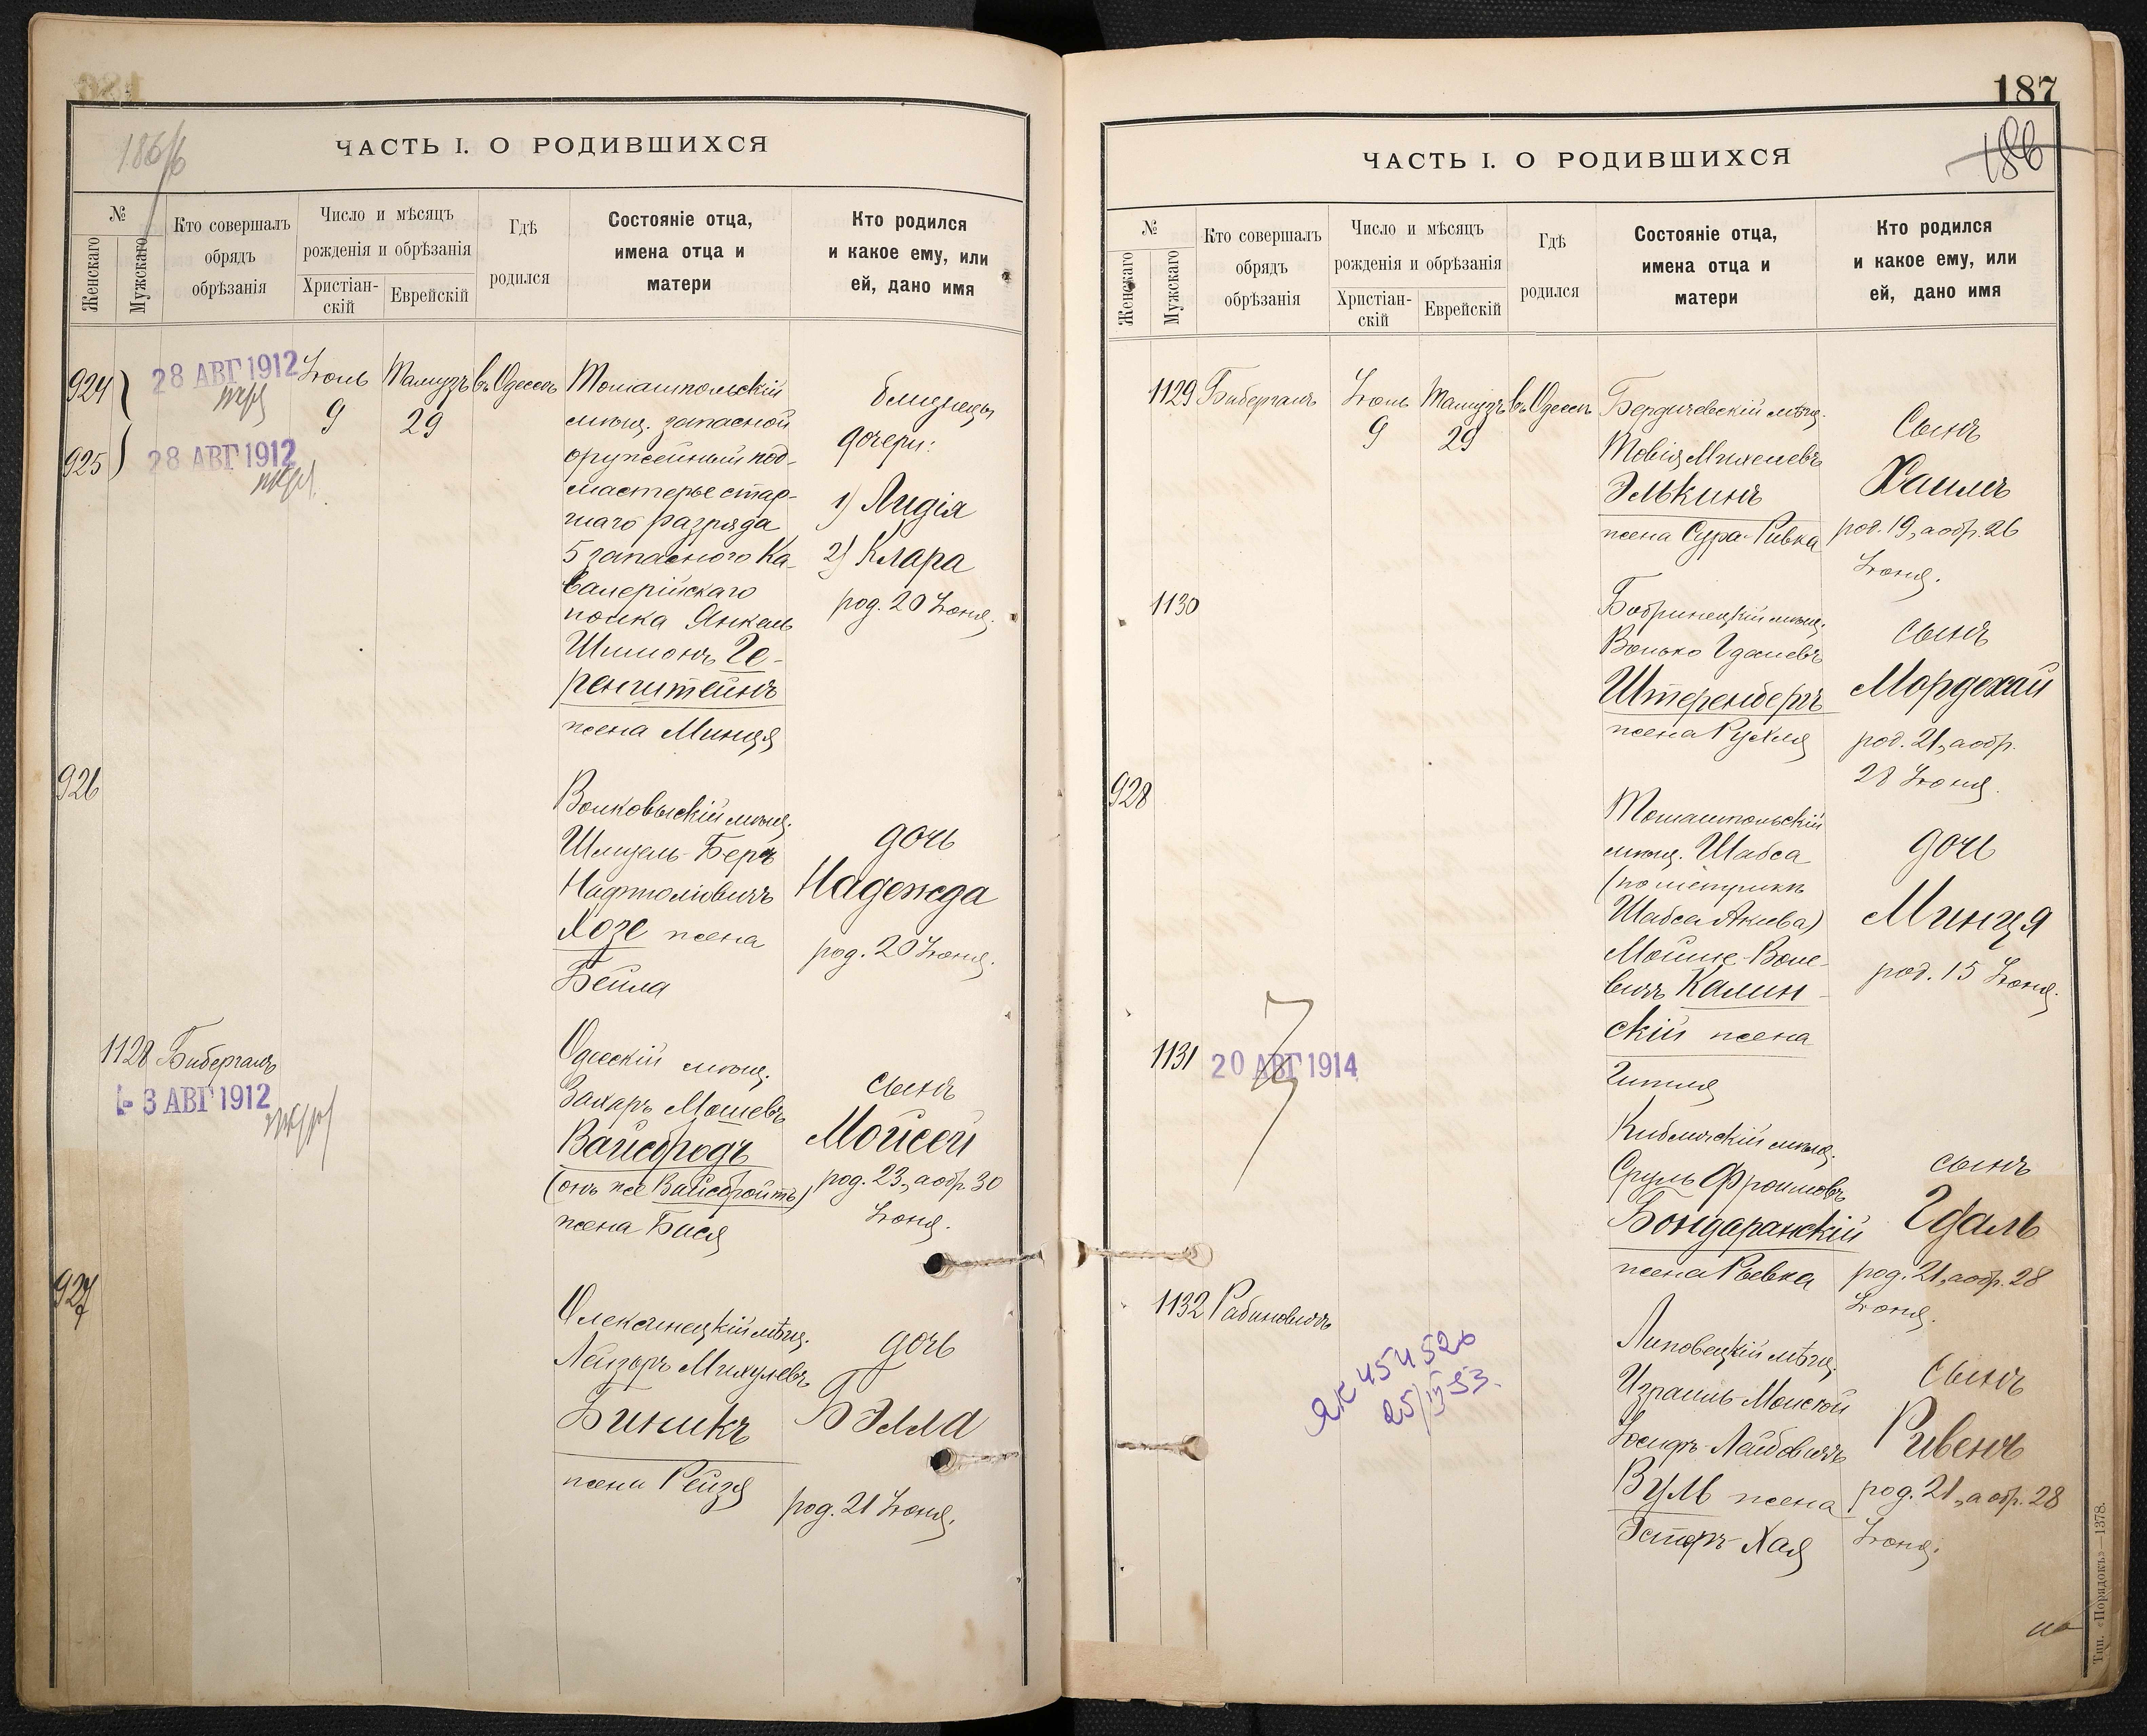 186
ЧАСТЬ I. О РОДИВШИХСЯ
№
Женскаго
Мужскаго
Кто совершалъ
обрядъ
обрѣзанія
Число и мѣсяцъ
рожденія и обрѣзанія
Христіан-
скій
Еврейскій
Гдѣ
родился
Состояніе отца,
имена отца и
матери
Кто родился
и какое ему, или
ей, дано имя
924
925
28 АВГ 1912
28 АВГ 1912
Іюль
9
Тамузъ
29
въ Одессѣ
Томашпольскій
мѣщ. запасной
оружейный под-
мастерье стар-
шаго разряда
5 запаснаго Ка-
валерійскаго
полка Янкель
Шимонъ Ге-
ренштейнъ
жена Минця
близнецы
дочери:
1) Лидія
2) Клара
род. 20 Іюня.
926
Волковыскій мѣщ.
Шмуель-Беръ
Нафтоліовичъ
Хозе жена
Бейла
дочь
Надежда
род. 20 Іюня.
1128 Бибергалъ
3 АВГ 1912
Одесскій мѣщ.
Захаръ Мошевъ
Вайсбродъ
(онъ же Вайсбройтъ)
жена Бася
сынъ
Мойсей
род. 23, а обр. 30
Іюня.
927
Олексинецкій мѣщ.
Лейзоръ Михулевъ
Биникъ
жена Рейзя
дочь
Бэлла
род. 21 Іюня.
187
186
ЧАСТЬ I. О РОДИВШИХСЯ
№
Женскаго
Мужскаго
Кто совершалъ
обрядъ
обрѣзанія
Число и мѣсяцъ
рожденія и обрѣзанія
Христіан-
скій
Еврейскій
Гдѣ
родился
Состояніе отца,
имена отца и
матери
Кто родился
и какое ему, или
ей, дано имя
1129 Бибергалъ
Іюль
9
Тамузъ
29
въ Одессѣ
Бердичевскій мѣщ.
Товія Михелевъ
Элькинъ
жена Сура-Ривка
Сынъ
Хаимъ
род. 19, а обр. 26
Іюня.
1130
Бобринецкій мѣщ.
Волько Гдалевъ
Штеренбергъ
жена Рухля
сынъ
Мордехай
род. 21, а обр.
28 Іюня.
928
Томашпольскій
мѣщ. Шабса
(по метрикѣ
Шабса Акива)
Мойше-Воле-
вичъ Калин-
скій жена
Гитля
дочь
Минця
род. 15 Іюня.
1131
20 АВГ 1914
Кибличскій мѣщ.
Сруль Фроимовъ
Бондаранскій
жена Ревека
сынъ
Гдаль
род. 21, а обр. 28
Іюня.
1132 Рабиновичъ
ЯК 454526
25/IV 53.
Липовецкій мѣщ.
Израиль-Моисей
Іосифъ-Лейбовичъ
Вуль жена
Эстеръ-Хая
сынъ
Рувенъ
род. 21, а обр. 28
Іюня.
Тип. «Порядокъ»—1378.